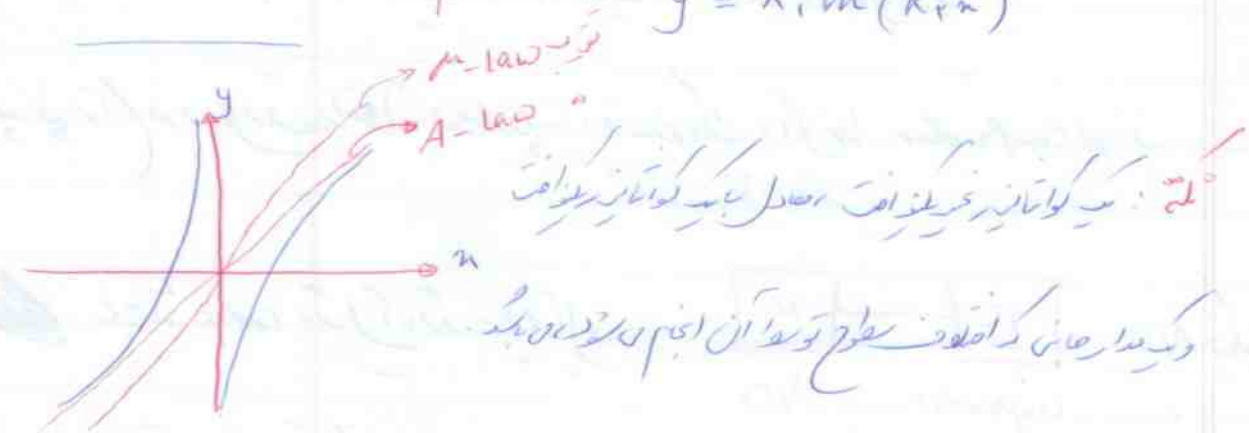 y = k₁ ln(k₂x)
تقریب μ-law
" A-law
y
x
نکته: یک کوانتایزر غیر یکنواخت، معادل با یک کوانتایزر یکنواخت
و یک مدار جانبی که اختلاف سطوح توسط آن انجام می شود، می باشد.